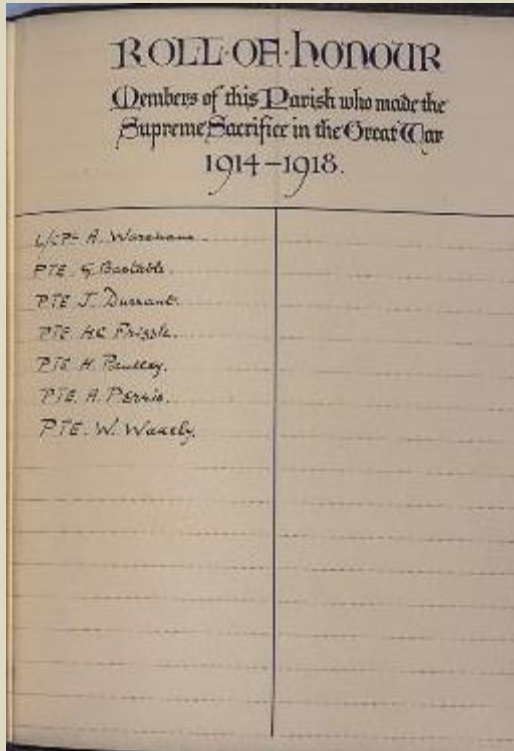 ROLL·OF·HONOUR
Members of this Parish who made the
Supreme Sacrifice in the Great War
1914–1918.
L/CPL A. Wareham.
PTE. G. Bastable.
PTE J. Durrant.
PTE. H.C. Frizzle.
PTE H.
PTE. A.
PTE. W. Wakely.